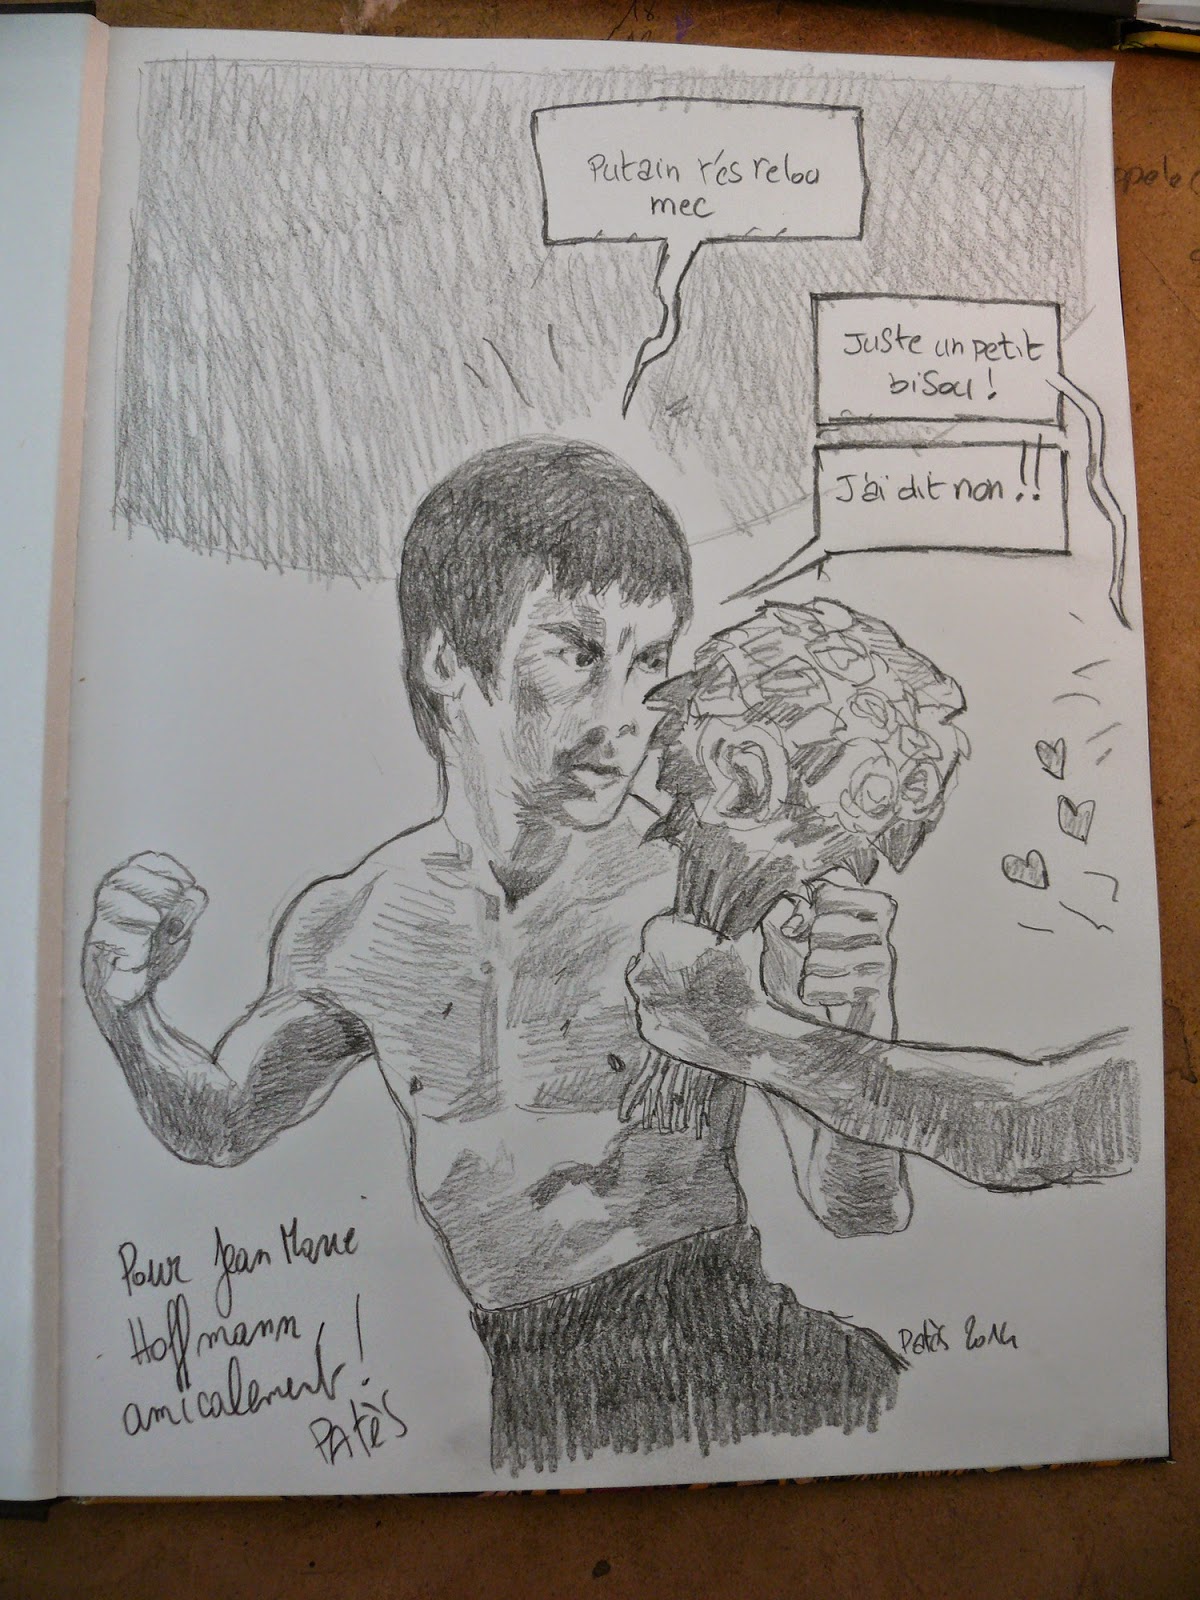 Putain t'es relou
mec
Juste un petit
bisou !
J'ai dit non !!
Pour Jean Marie
Hoffmann
amicalement !
PAtès
Patès 2014